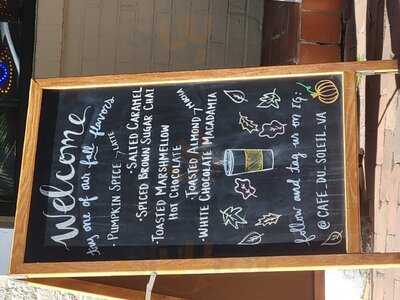 Welcome
try one of our fall flavors
- Pumpkin Spice Latte
- Salted Caramel
- Spiced Brown Sugar Chai
- Toasted Marshmellow
Hot Chocolate
- Toasted Almond
Mocha
- White Chocolate Macadamia
follow and tag us on IG:
@CAFE_DU_SOLEIL_VA